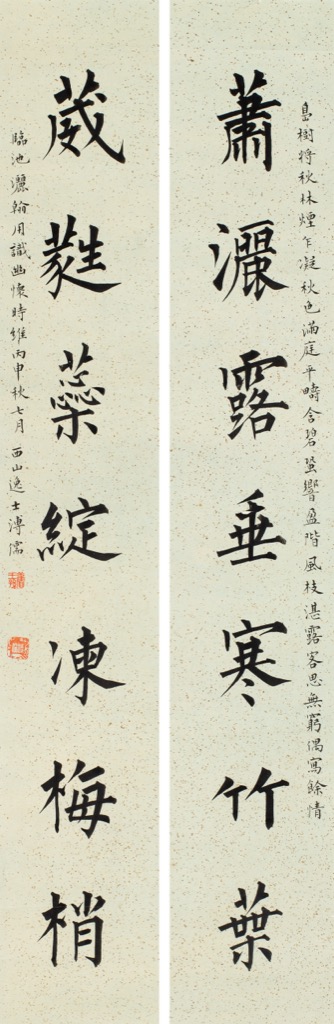 島樹將秋林煙乍凝秋色滿庭平疇含碧蛩響盈階風枝湛露客思無窮偶寫餘情
蕭灑露垂寒竹葉
葳蕤蘂綻凍梅梢
臨池灑翰用識幽懷時維丙申秋七月 西山逸士溥儒